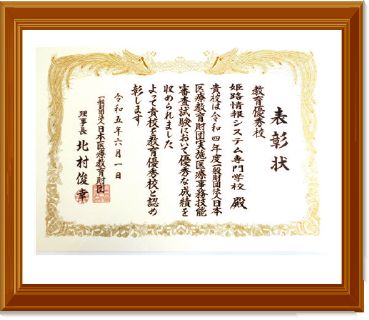 表彰状
教育優秀校
姫路情報システム専門学校 殿
貴校は令和四年度一般財団法人日本
医療教育財団実施医療事務技能
審査試験において優秀な成績を
収められました
よって貴校を教育優秀校と認め
彰します
令和五年六月一日
一般財団法人日本医療教育財団
理事長 北村俊幸